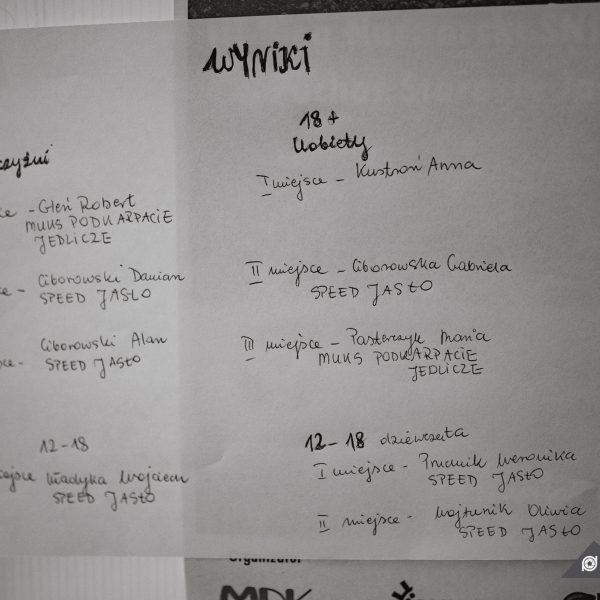 WYNIKI
czyźni
ce - Gleń Robert
MUKS PODKARPACIE
JEDLICZE
ce - Ciborowski Damian
SPEED JASŁO
ce - Ciborowski Alan
SPEED JASŁO
12-18
miejsce Władyka Wojciech
SPEED JASŁO
18+
Kobiety
I miejsce - Kustroń Anna
II miejsce - Ciborowska Gabriela
SPEED JASŁO
III miejsce - Pasterczyk Maria
MUKS PODKARPACIE
JEDLICZE
12-18 dziewczęta
I miejsce - Prucnik Weronika
SPEED JASŁO
II miejsce - Wojtunik Oliwia
SPEED JASŁO
Organizator
MDK